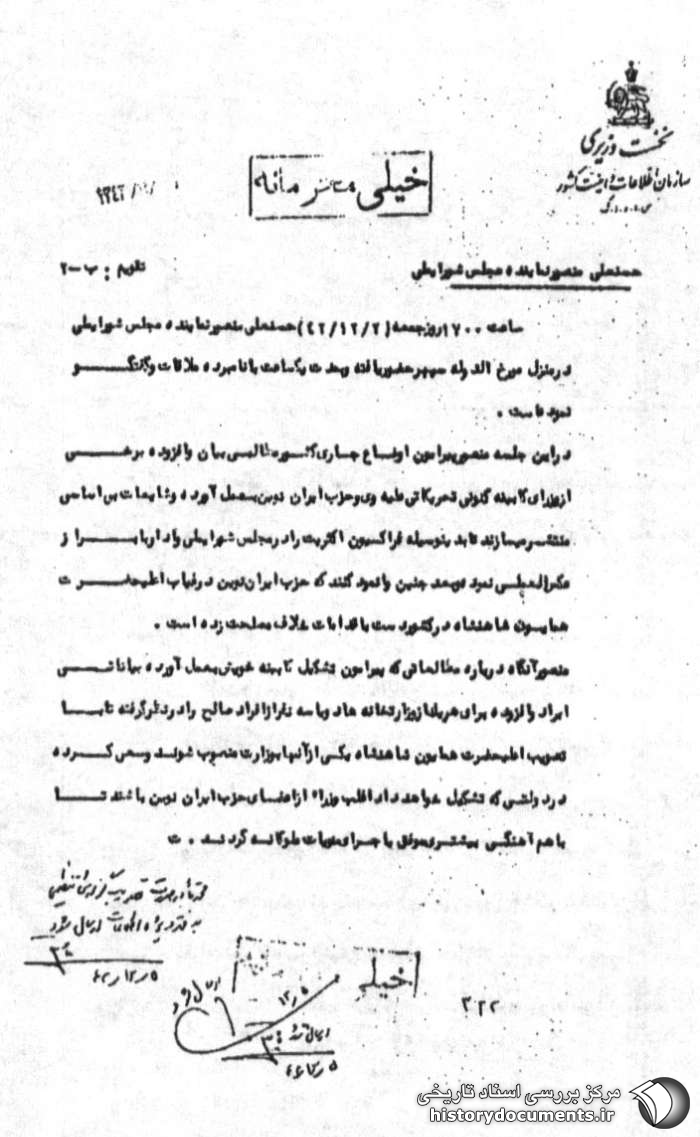 نخست وزیری
سازمان اطلاعات و امنیت کشور
خیلی محرمانه
حسنعلی منصور نماینده مجلس شورایملی
تقویم : ب-۲
ساعت ۱۷۰۰ روز جمعه (۴۲/۱۲/۲) حسنعلی منصور نماینده مجلس شورایملی
در منزل مورخ الدوله سپهر حضور یافته و بمدت یکساعت با نامبرده ملاقات و گفتگو
نموده است .
در این جلسه منصور پیرامون اوضاع جاری کشور مطالبی بیان و افزوده برخی
از وزرای کابینه کنونی تحریکاتی علیه وی و حزب ایران نوین بعمل آورده و شایعات بی اساسی
منتشر میسازند تا بدینوسیله فراکسیون اکثریت را در مجلس شورایملی وادار بابراز
عکس العملی نموده و بعد چنین وانمود کنند که حزب ایران نوین در غیاب اعلیحضرت
همایون شاهنشاه در کشور دست باقدامات خلاف مصلحت زده است .
منصور آنگاه درباره مطالعاتی که پیرامون تشکیل کابینه خویش بعمل آورده بیاناتی
ایراد و افزوده برای هریک از وزارتخانه ها دو یا سه نفر از افراد صالح را در نظر گرفته تا با
تصویب اعلیحضرت همایون شاهنشاه یکی از آنها بوزارت منصوب شوند و سعی کرده
در دولتی که تشکیل خواهد داد اغلب وزراء از اعضای حزب ایران نوین باشند تا
با هم آهنگی بیشتری موفق با جرای منویات ملوکانه گردند . ت
به دفتر ویژه اطلاعات ارسال شود
۴۲/۱۲/۵
خیلی
۱۲/۵
ارسال شد
۳۲۲
مرکز بررسی اسناد تاریخی
historydocuments.ir